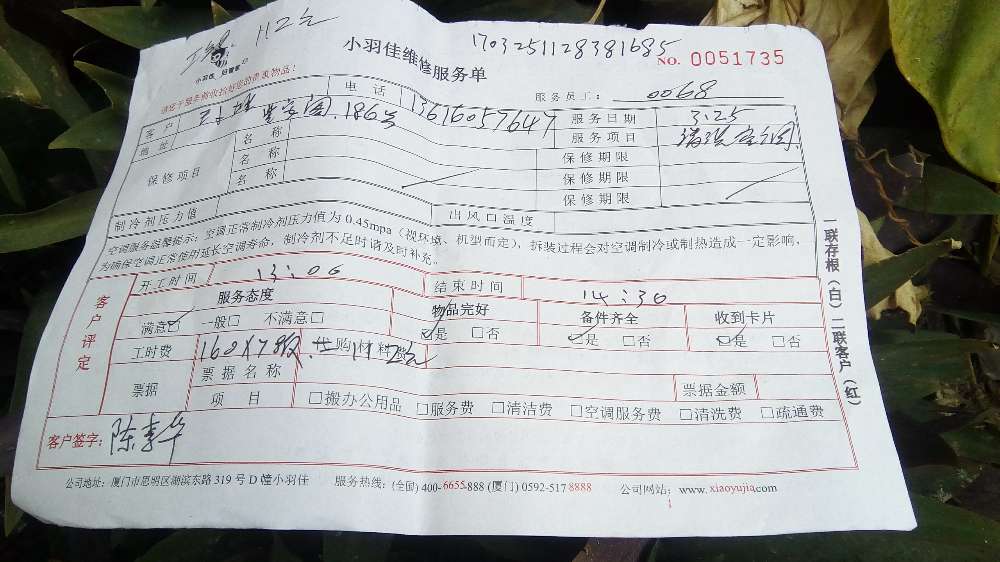 112元
1703251128381685
小羽佳维修服务单
NO. 0051735
小羽佳
请您于服务前收拾好您的贵重物品!
服务员工: 0068
客户
电话 13616057647
服务日期 3.25
地址 186号
服务项目 清洗空调
保修项目
名称 保修期限
名称 保修期限
名称 保修期限
制冷剂压力值 出风口温度
空调服务温馨提示: 空调正常制冷剂压力值为 0.45mpa (视环境、机型而定), 拆装过程会对空调制冷或制热造成一定影响,
为确保空调正常使用延长空调寿命, 制冷剂不足时请及时补充。
客户评定
开工时间 13:06 结束时间 14:30
服务态度 物品完好 备件齐全 收到卡片
满意☑ 一般□ 不满意□ ☑是 □否 ☑是 □否 ☑是 □否
工时费 160X7 购材料费
票据
票据名称 票据金额
项目 □搬办公用品 □服务费 □清洁费 □空调服务费 □清洗费 □疏通费
客户签字:
公司地址: 厦门市思明区湖滨东路 319 号 D 幢小羽佳 服务热线: (全国) 400-6655-888 (厦门) 0592-517 8888 公司网站: www. xiaoyujia.com
一联存根(白) 二联客户(红)